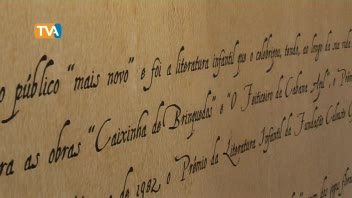 TVA
o público "mais novo" e foi a literatura infantil que o celebrizou, tendo, ao longo da sua
ra as obras "Caixinha de Brinquedos" e "O Feiticeiro da Cabana Azul", e
de 1982, o Prémio da Literatura Infantil da Fundação Calouste